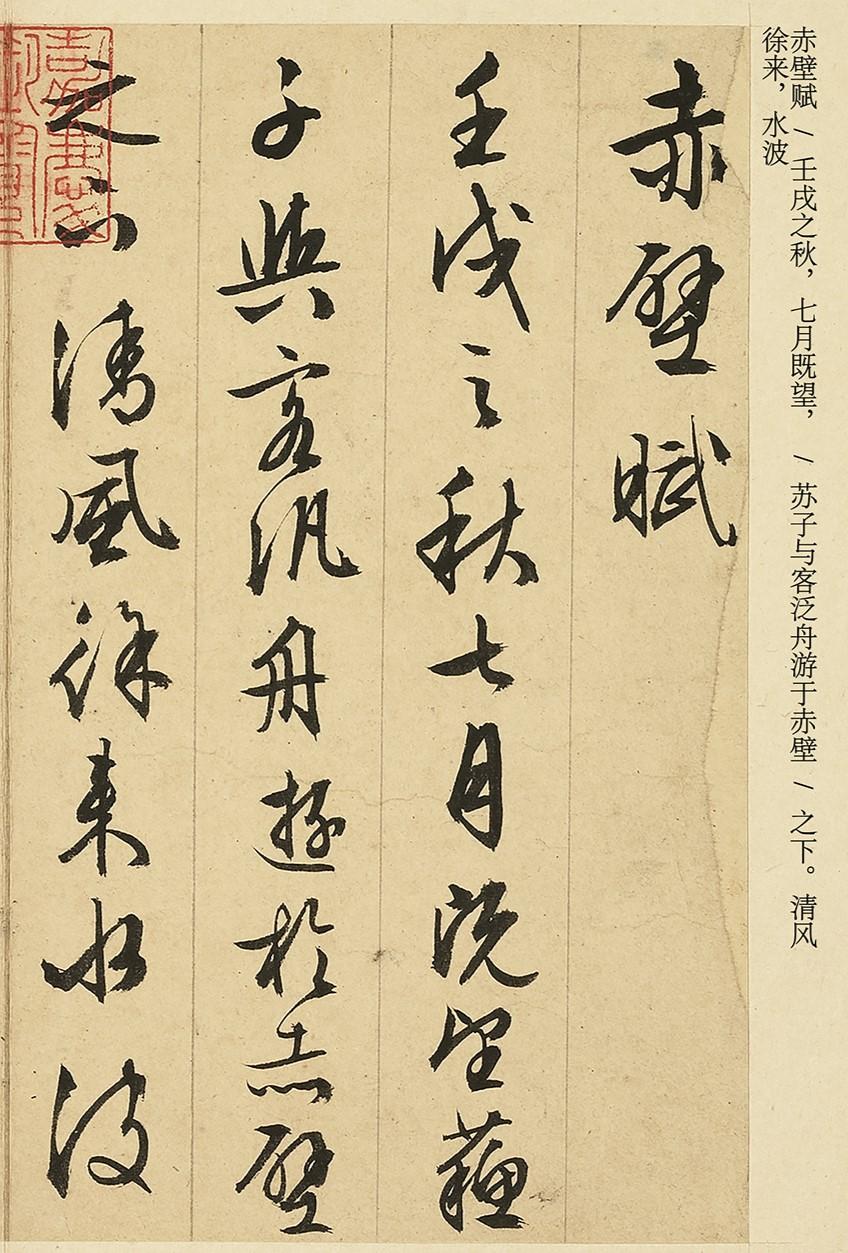 赤壁赋 \ 壬戌之秋，七月既望， \ 苏子与客泛舟游于赤壁 \ 之下。清风
徐来，水波
赤壁賦
壬戌之秋七月既望蘇
子與客汎舟遊於赤壁
之下清風徐來水波